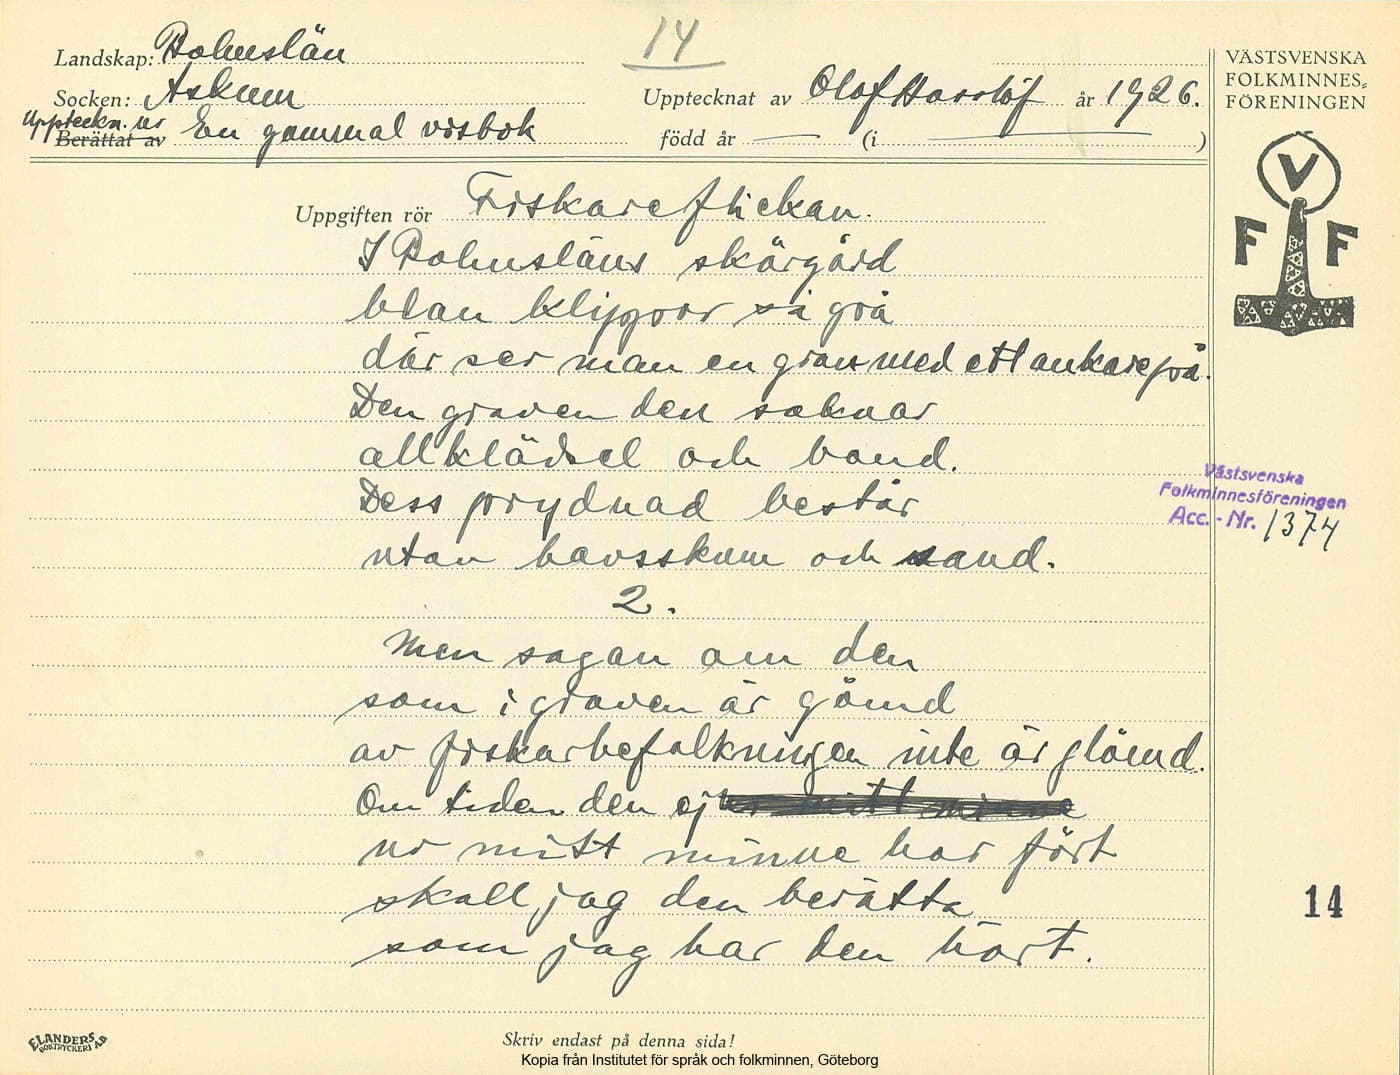 14
Landskap: Bohuslän
Socken: Askum
Upptecknat av Olof Hasslöf år 1926.
Uppteckn. ur
Berättat av En gammal visbok
född år — (i — )
VÄSTSVENSKA
FOLKMINNES=
FÖRENINGEN
V
F F
Uppgiften rör Fiskareflickan.
I Bohusläns skärgård
blan klippor så grå
där ser man en grav med ett ankare på.
Den graven den saknar
all klädsel och band.
Dess prydnad består
utav havsskum och sand.
2.
Men sagan om den
som i graven är gömd
av fiskarbefolkningen inte är glömd.
Om tiden den ej ur mitt minne
ur mitt minne har fört
skall jag den berätta
som jag har den hört.
Västsvenska
Folkminnesföreningen
Acc. - Nr. 1374
14
ELANDERS
BOKTRYCKERI AB
Skriv endast på denna sida!
Kopia från Institutet för språk och folkminnen, Göteborg